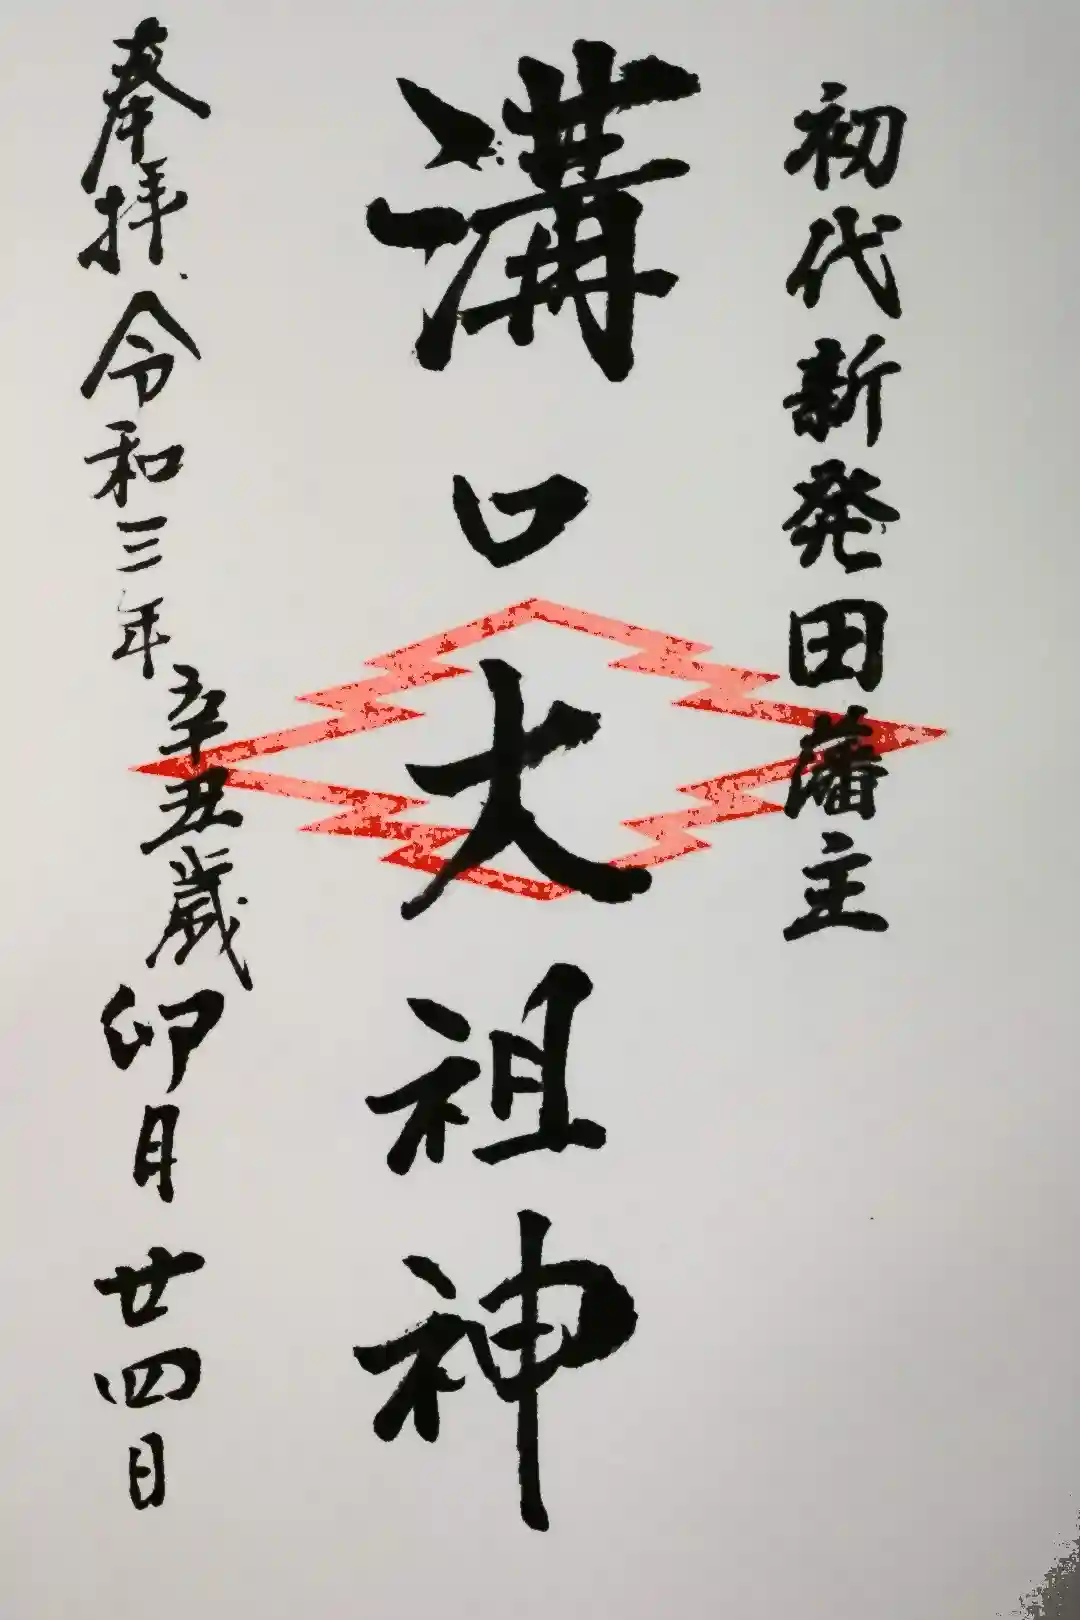 初代新発田藩主
溝口大祖神
奉拝 令和三年辛丑歳卯月廿四日